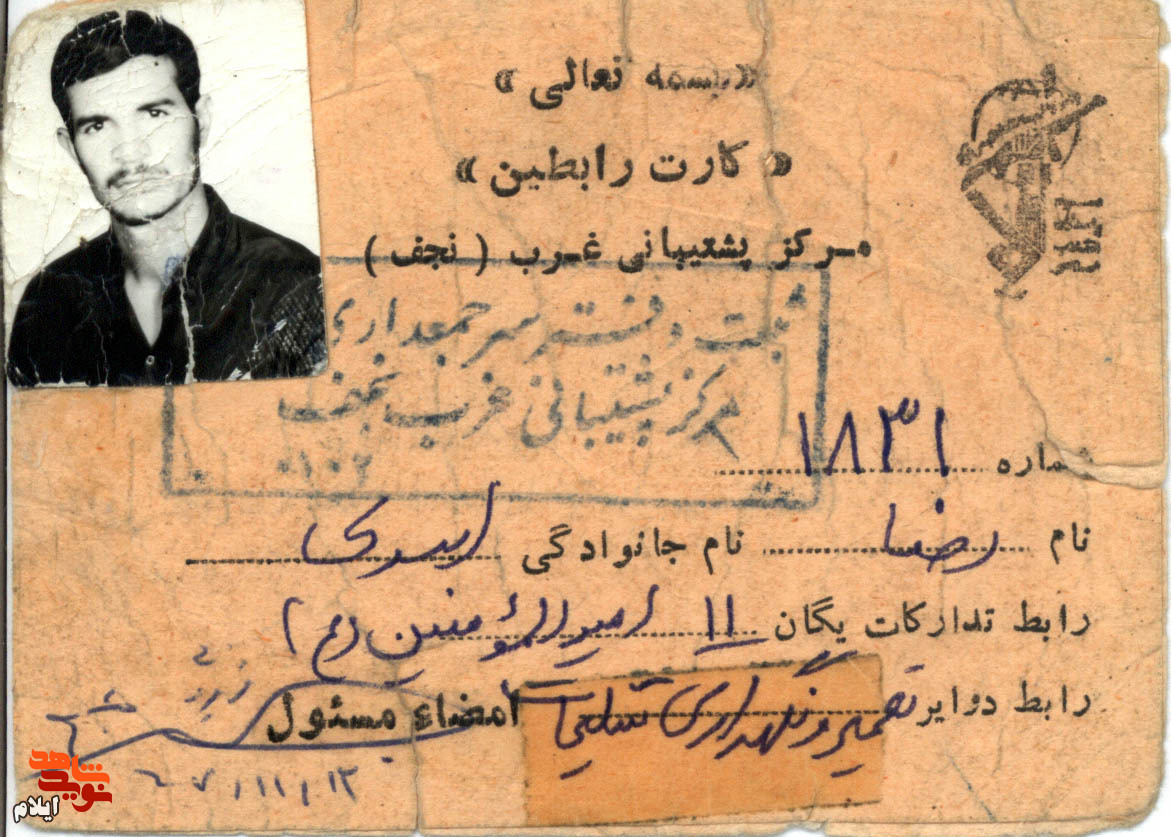 «بسمه تعالی»
« کارت رابطین »
مرکز پشتیبانی غرب ( نجف )
ثبت دفتر سرجمعداری
مرکز پشتیبانی غرب نجف
شماره ۱۸۳۱
نام رضا نام خانوادگی اسدی
رابط تدارکات یگان ۱۱ امیرالمؤمنین (ع)
رابط دوایر تعمیر و نگهداری تسلیحات امضاء مسئول
نوید شاهد
ایلام